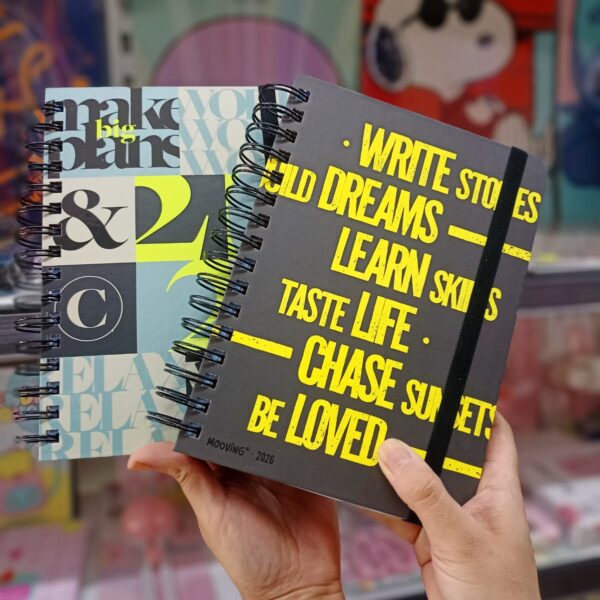 make
big
plans
WOW
WOW
WOW
&
2
C
RELAX
RELAX
RELAX
· WRITE STORIES
BUILD DREAMS
LEARN SKILLS
TASTE LIFE ·
CHASE SUNSETS
BE LOVED
MOOVING® · 2026